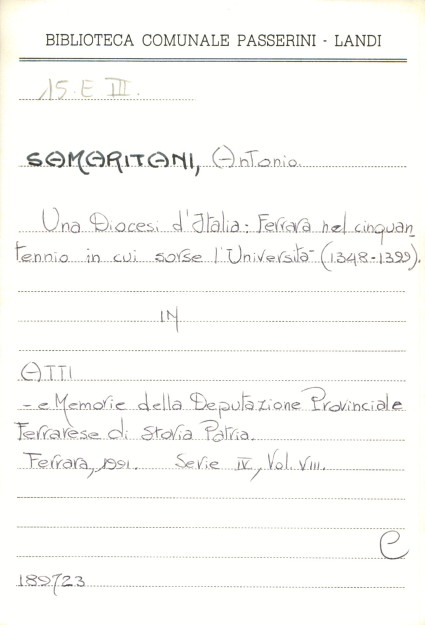 BIBLIOTECA COMUNALE PASSERINI - LANDI
15. E III.
SAMARITANI, Antonio
Una Diocesi d'Italia: Ferrara nel cinquan_
tennio in cui sorse l'Università (1348-1399).
IN
ATTI
- e Memorie della Deputazione Provinciale
Ferrarese di Storia Patria.
Ferrara, 1991. Serie IV, Vol. VIII.
C
189723